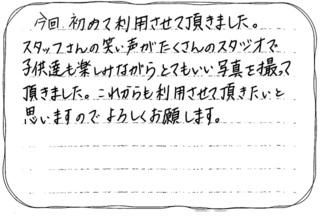 今回初めて利用させて頂きました。
スタッフさんの笑い声がたくさんのスタジオで
子供達も楽しみながらとてもいい写真を撮って
頂きました。これからも利用させて頂きたいと
思いますのでよろしくお願します。